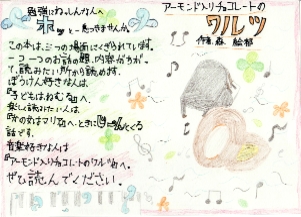 勉強にねっしんな人へ
ホッと一息つきませんか。
この本は、三つの場面にくぎられています。
一つ一つのお話の題、内容がちがって、
読みたい所から読めます。
ぼうけん好きな人は、
『子どもは眠る』へ。
楽しく読みたい人は、
『彼女のアリア』へ。ときにじーんとくる
話です。
音楽好きな人は
『アーモンド入りチョコレートのワルツ』へ。
ぜひ読んでください。
アーモンド入りチョコレートの
ワルツ
作者 森 絵都